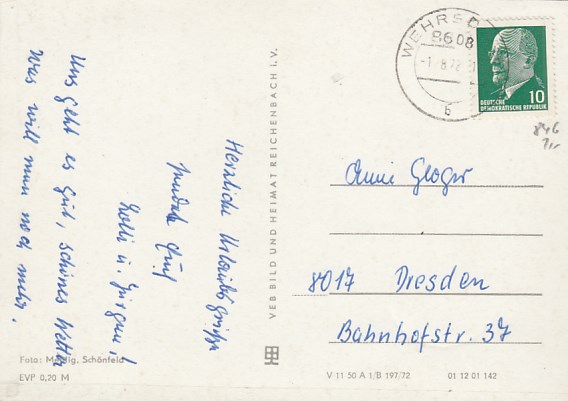 Herzliche Urlaubsgrüße
sendet Euch
Lolli u. Jürgen!
Uns geht es gut, schönes Wetter
was will man noch mehr.
VEB BILD UND HEIMAT REICHENBACH I. V.
WEHRSD
8608
-1.-8.72
b
10
DEUTSCHE
DEMOKRATISCHE REPUBLIK
846
Anni Gloger
8017 Dresden
Bahnhofstr. 37
Foto: Schönfeld
EVP 0,20 M
V 11 50 A 1/B 197/72 01 12 01 142